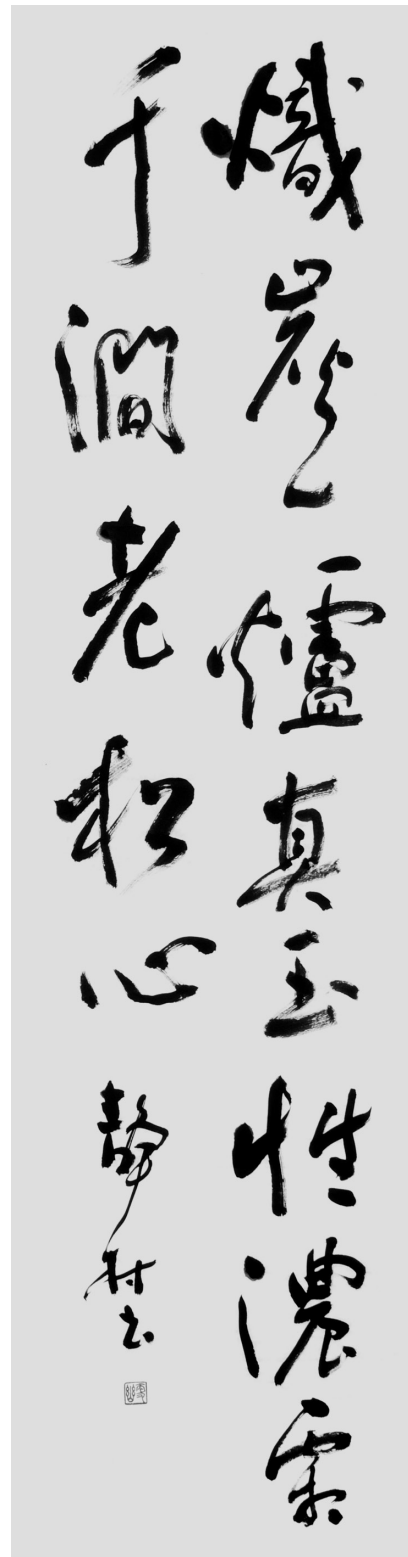 熾炭一爐真玉性濃霜
千澗老松心
靜村书